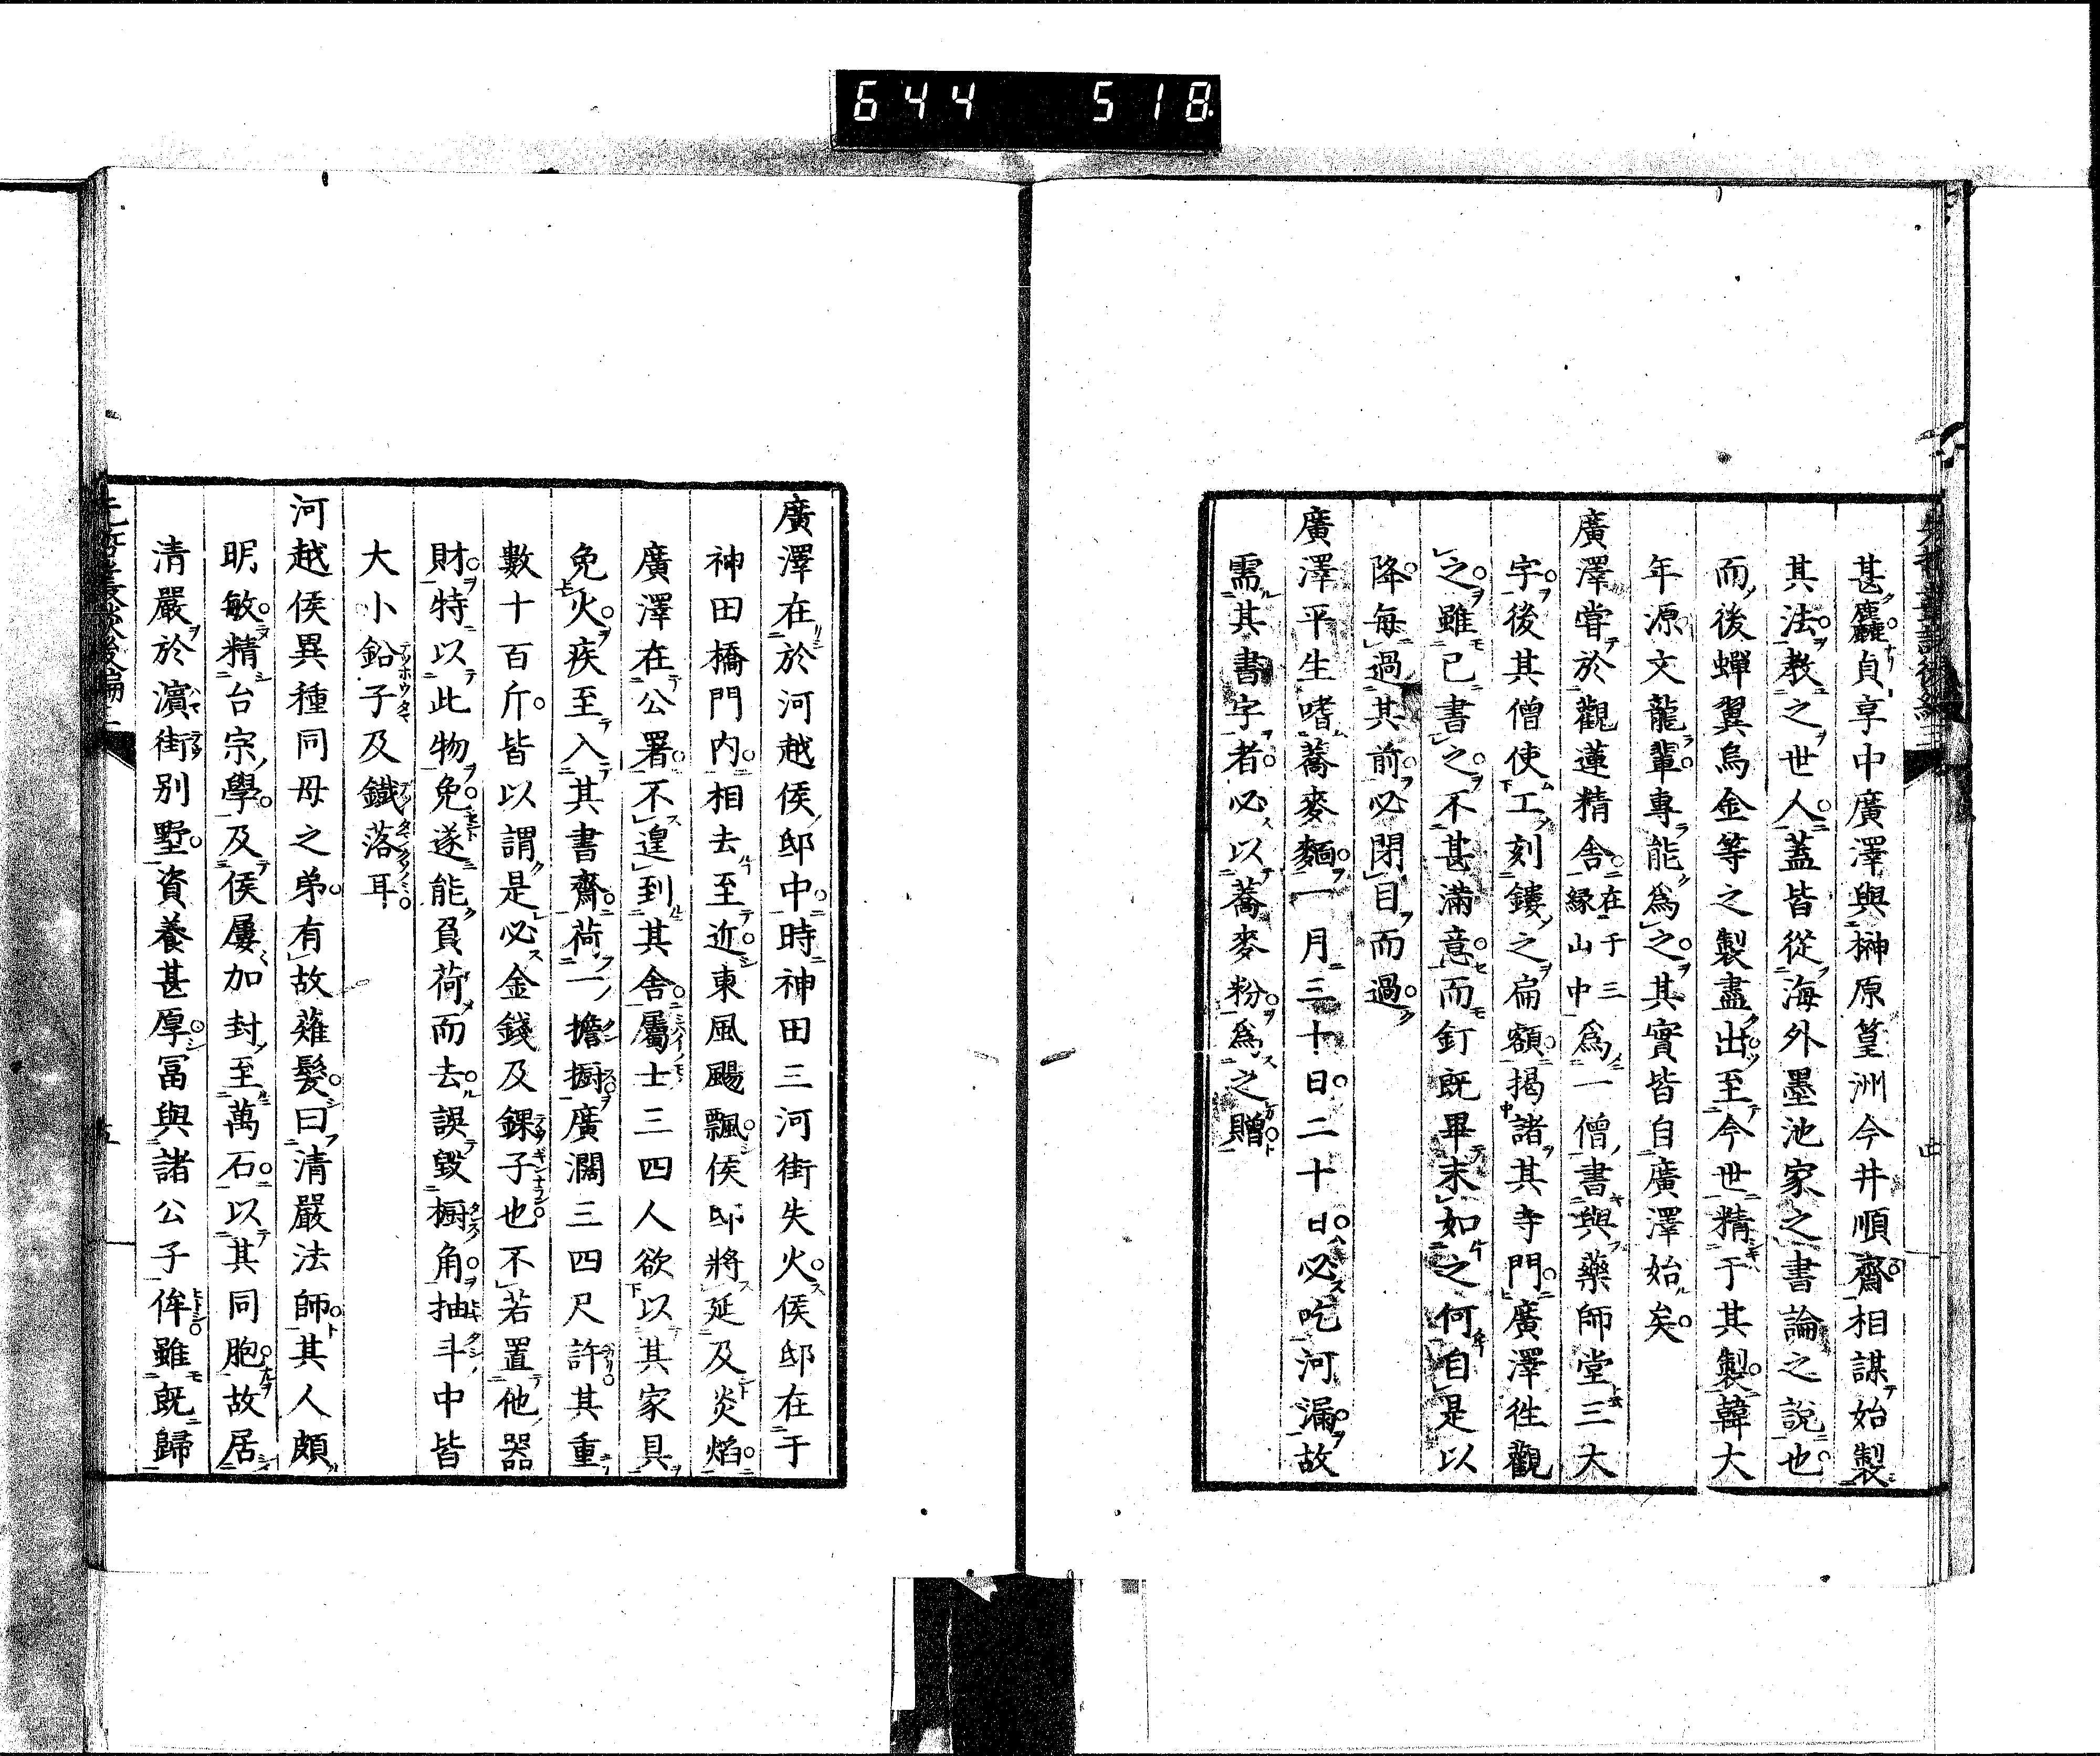 644 518
甚麤貞享中廣澤與榊原篁洲今井順齋相謀始製
其法教之世人蓋皆從海外墨池家之書論之說也
而後蟬翼烏金等之製盡出至今世精于其製韓大
年源文龍輩專能爲之其實皆自廣澤始矣
廣澤嘗於觀蓮精舍在于三緣山中爲一僧書與藥師堂三大
字後其僧使工刻鏤之扁額揭諸其寺門廣澤徃觀
之雖已書之不甚滿意而釘既畢末如之何自是以
降每過其前必閉目而過
廣澤平生嗜蕎麥麵一月三十日二十日必吃河漏故
需其書字者必以蕎麥粉爲之贈
廣澤在於河越侯邸中時神田三河街失火侯邸在于
神田橋門内相去至近東風颺飄侯邸將延及炎焰
廣澤在公署不遑到其舍屬士三四人欲以其家具
免火疾至入其書齋荷一擔橱廣濶三四尺許其重
數十百斤皆以謂是必金錢及錁子也不若置他器
財特以此物免遂能負荷而去誤毀橱角抽斗中皆
大小鉛子及鐵落耳
河越侯異種同母之弟有故薙髮曰清嚴法師其人頗
明敏精台宗學及侯屢加封至萬石以其同胞故居
清嚴於濵街别墅資養甚厚冨與諸公子侔雖既歸